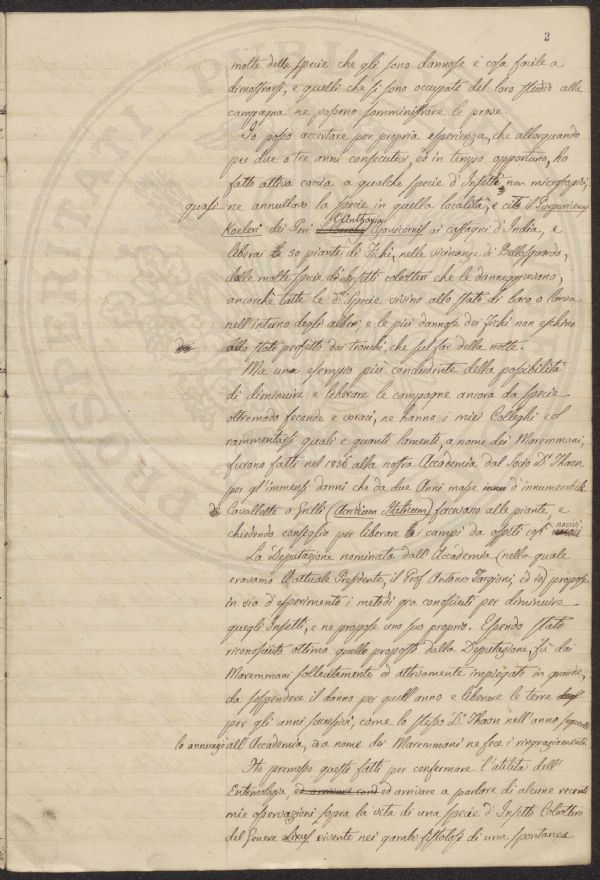 2
molte delle specie che gli sono dannose è cosa facile a
dimostrarsi, e quelli che si sono occupati del loro studio alla
campagna ne possono somministrare le prove.
Io posso accertare per propria esperienza, che allorquando
per due o tre anni consecutivi, ed in tempo opportuno, ho
fatto attiva caccia a qualche specie d'Insetto, non microscopici,
quasi ne annullavo la specie in quella località, e cito il
Koeleri dei Peri Anthaxia ai castagni d'India, e
liberai 30 piante di Fichi, nelle vicinanze di Bellosguardo,
dalle molte specie di Insetti coleotteri che le danneggiavano,
ancorchè tutte le dte specie vivino allo stato di baco o larva
nell'interno degli alberi, e le più dannose dei Fichi non eschino
allo stato perfetto dai tronchi, che sul far della notte.
Ma una esempio più concludente della possibilità
di diminuire e liberare le campagne ancora da specie
oltremodo feconde e voraci, ne hanno i miei Colleghi col
rammentarsi quali e quanti lamenti, a nome dei Maremmani,
furono fatti nel 1836 alla nostra Accademia dal Socio Dr. Thaon
per gl'immensi danni che da due Anni masse d'innumerabili
di Cavallette o Grilli (Acridium Italicum) facevano alle piante, e
chiedendo consiglio per liberare i campi da ospiti così nocivi.
La Deputazione nominata dall'Accademia (nella quale
eravamo l'attuale Presidente, il Prof Antonio Targioni, ed io) propose
in via d'esperimento i metodi gia conosciuti per diminuire
quegli Insetti, e ne propose uno suo proprio. Essendo stato
riconosciuto ottimo quello proposto dalla Deputazione, fù dai
Maremmani sollecitamente ed attivamente impiegato in grande,
da sospendere il danno per quell'anno e liberare le terre
per gli anni successivi, come lo stesso Dr. Thaon nell'anno seguente
lo annunziò all'Accademia, ed a nome dei Maremmani ne fece i ringraziamenti.
Ho premesso questi fatti per confermare l'utilità dell'
Entomologia, ed arrivare a parlare di alcune recenti
mie osservazioni sopra la vita di una specie d'Insetto Coleottero
del Genere Lixus vivente nei gambi fistolosi di una spontanea
PROSPERITATI PUBLICAE